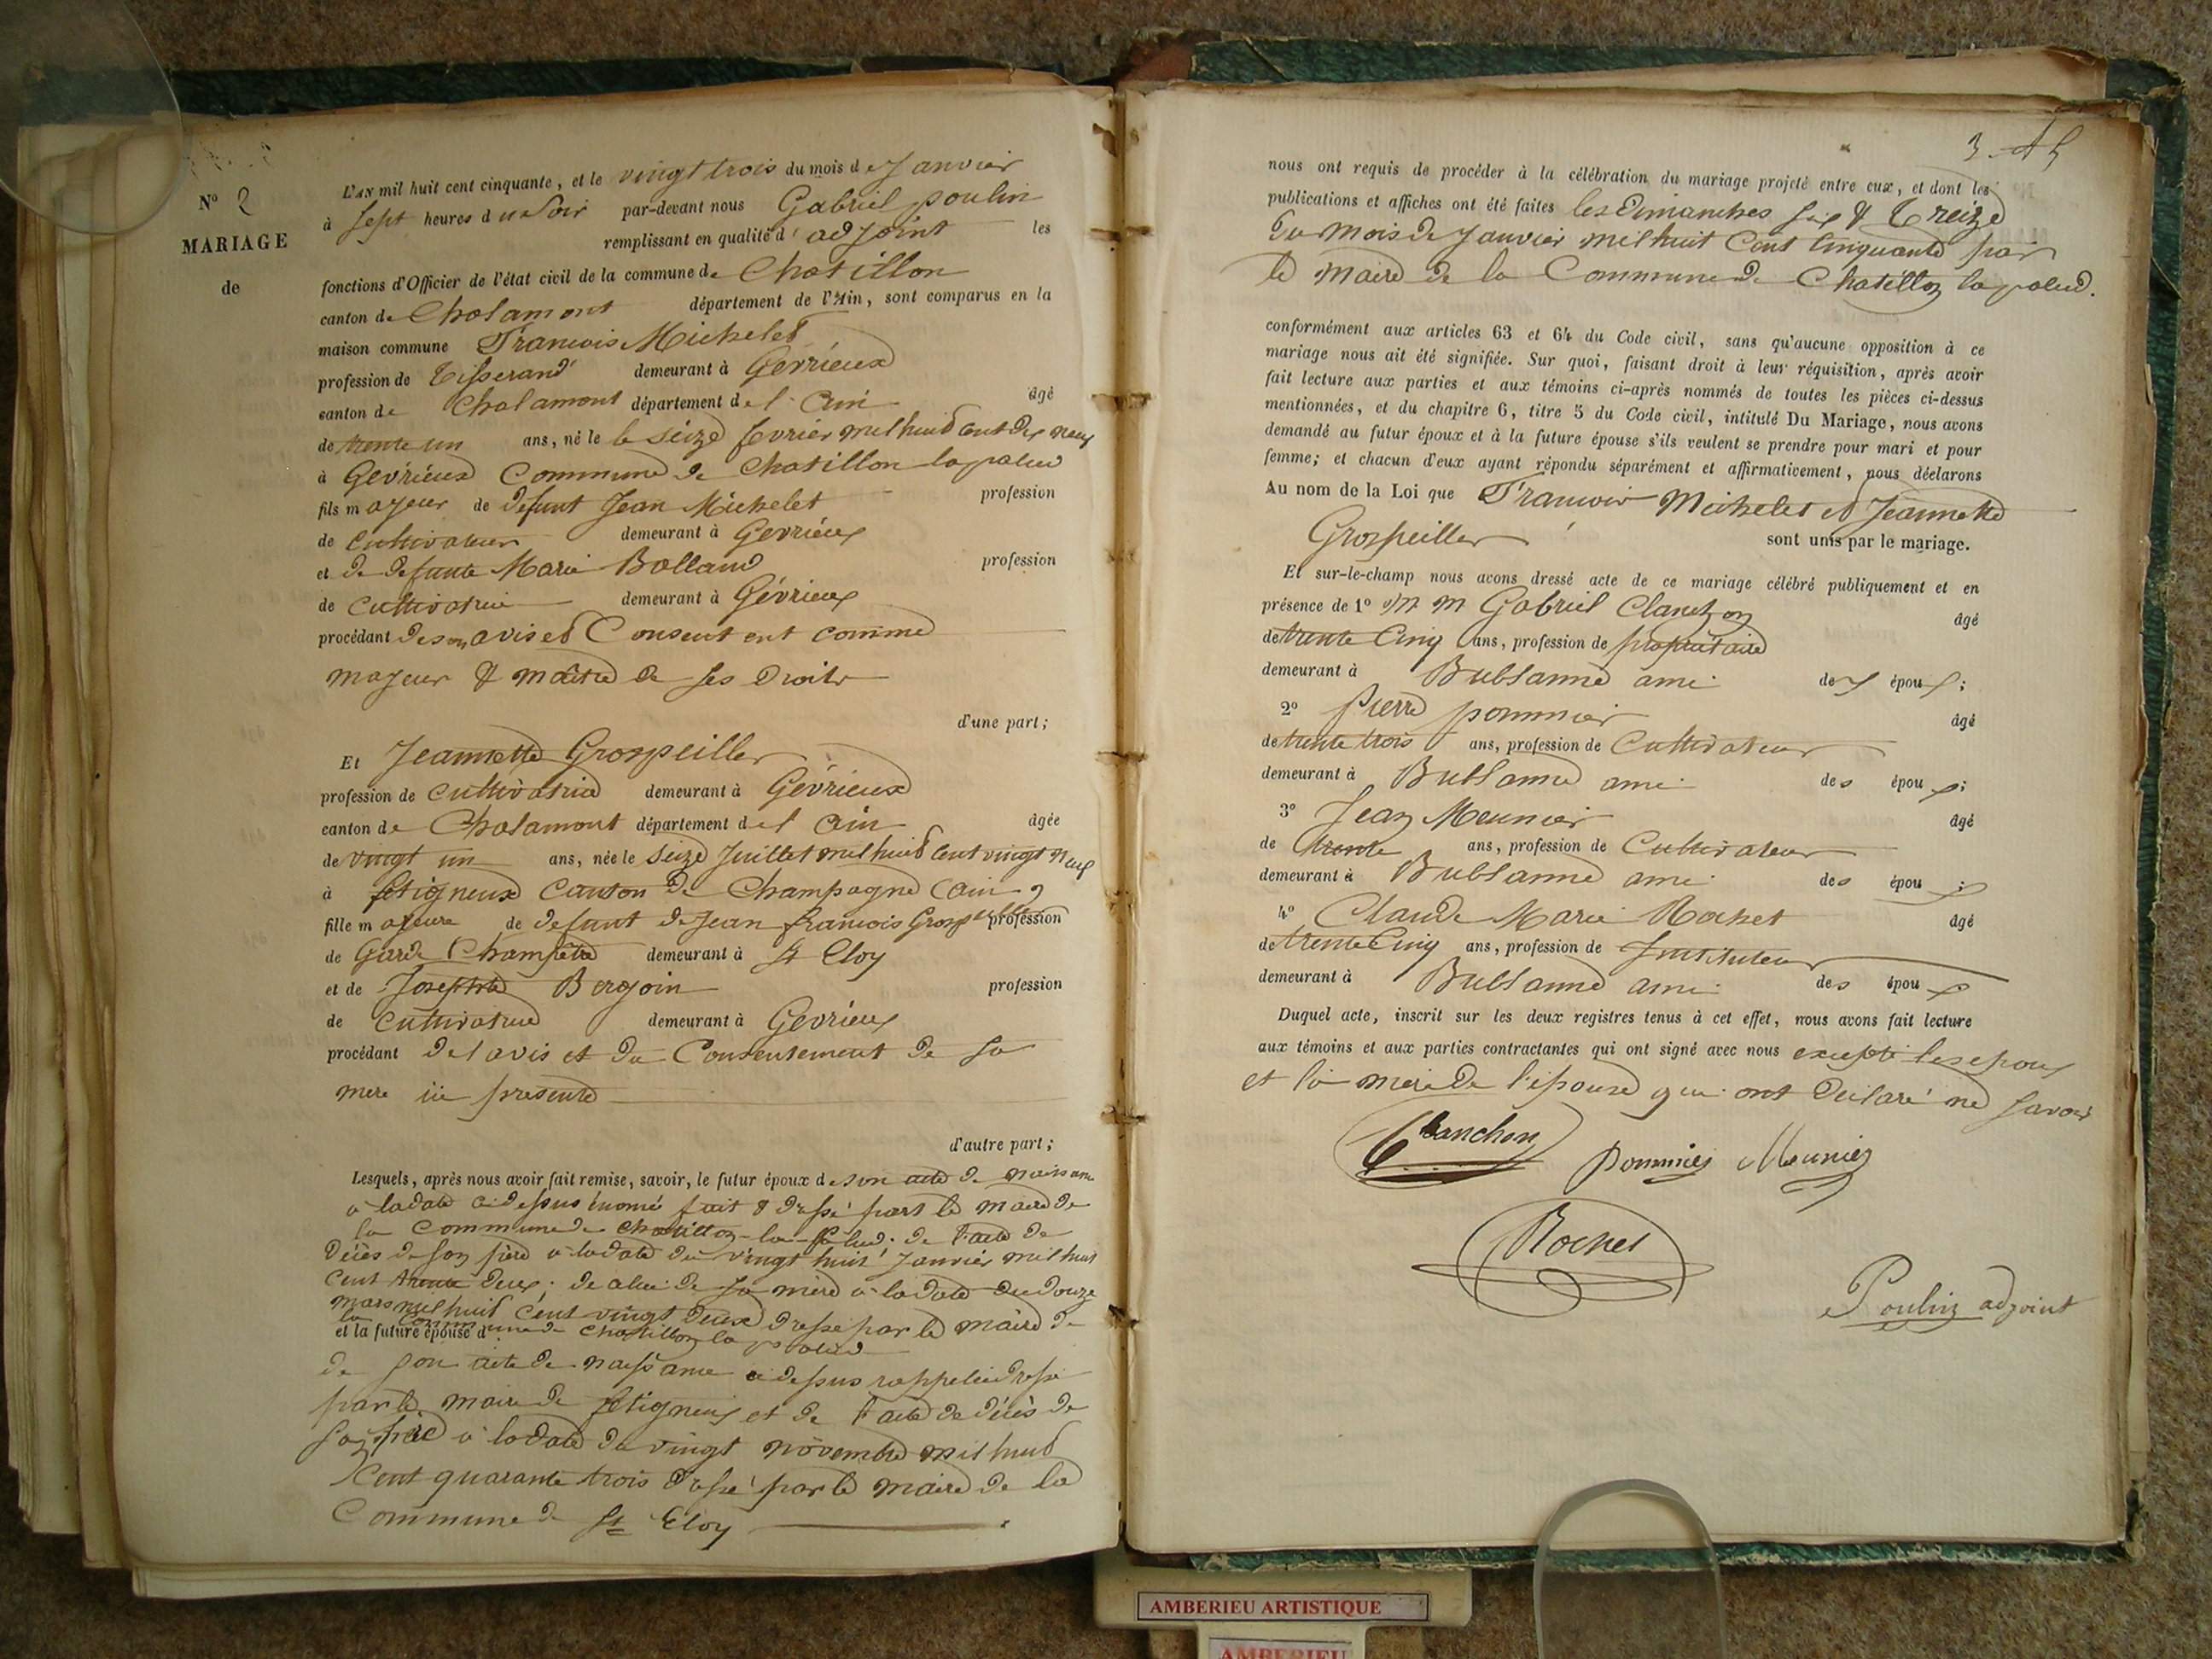 N° 2
MARIAGE
de
L'AN mil huit cent cinquante, et le vingt trois du mois de Janvier
à sept heures du Soir par-devant nous Gabriel poulin
remplissant en qualité d'adjoint les
fonctions d'Officier de l'état civil de la commune de Chatillon
canton de Chalamont département de l'Ain, sont comparus en la
maison commune Francois Michelet
profession de Tisserand demeurant à Gevrieux
canton de Chalamont département de l'Ain âgé
de trente un ans, né le le seize fevrier mil huit cent dix neuf
à Gévrieux Commune de Chatillon lapalud
fils majeur de defunt Jean Michelet profession
de cultivateur demeurant à Gevrieux
et de defunte Marie Bolland profession
de Cultivatrice demeurant à Gévrieux
procédant de son avis et Consentent comme
majeur & maitre de ses Droits
d'une part;
Et Jeannette Grospeiller
profession de cultivatrice demeurant à Gévrieux
canton de Chalamont département de l'Ain âgée
de vingt un ans, née le seize Juillet mil huit cent vingt neuf
à fitigneux Canton de Champagne (ain)
fille majeure de defunt de Jean francois Grospeiller profession
de Garde Champêtre demeurant à St Eloy
et de Josephte Bergoin profession
de cultivatrice demeurant à Gevrieux
procédant de l'avis et du Consentement de sa
mere ici presente
d'autre part;
Lesquels, après nous avoir fait remise, savoir, le futur époux de son acte de naissance
à la date ci dessus énoncé fait & dressé part le maire de
la Commune de Chatillon-la-palud. de l'acte de
décès de son père à la date du vingt huit Janvier mil huit
cent trente deux. de celui de sa mère à la date du douze
mars mil huit cent vingt deux dressé par le maire de
la Commune de Chatillon la palud
et la future épouse d
de son acte de naissance ci dessus rappelé dressé
par le maire de fitigneux et de l'acte de décès de
son père à la date du vingt novembre mil huit
cent quarante trois dressé par le maire de la
Commune de St Eloy
nous ont requis de procéder à la célébration du mariage projeté entre eux, et dont les
publications et affiches ont été faites les Dimanches six & Treize
du mois de Janvier mil huit Cent Cinquante par
le maire de la Commune de Chatillon lapalud.
conformément aux articles 63 et 64 du Code civil, sans qu'aucune opposition à ce
mariage nous ait été signifiée. Sur quoi, faisant droit à leur réquisition, après avoir
fait lecture aux parties et aux témoins ci-après nommés de toutes les pièces ci-dessus
mentionnées, et du chapitre 6, titre 5 du Code civil, intitulé Du Mariage, nous avons
demandé au futur époux et à la future épouse s'ils veulent se prendre pour mari et pour
femme; et chacun d'eux ayant répondu séparément et affirmativement, nous déclarons
Au nom de la Loi que Francois Michelet et Jeannette
Grospeiller sont unis par le mariage.
Et sur-le-champ nous avons dressé acte de ce mariage célébré publiquement et en
présence de 1° M m Gabriel Clanchon âgé
de trente Cinq ans, profession de propriétaire
demeurant à Bublanne ami des époux;
2° pierre pommier âgé
de trente trois ans, profession de Cultivateur
demeurant à Bublanne ami des époux;
3° Jean Meunier âgé
de trente ans, profession de Cultivateur
demeurant à Bublanne ami des époux;
4° Claude Marie Rochet âgé
de trente Cinq ans, profession de Instituteur
demeurant à Bublanne ami des époux
Duquel acte, inscrit sur les deux registres tenus à cet effet, nous avons fait lecture
aux témoins et aux parties contractantes qui ont signé avec nous excepté les epoux
et la mere de l'épouse qui ont déclaré ne savoir
Clanchon pommier Meunier
Rochet
Poulin adjoint
AMBERIEU ARTISTIQUE
AMBERIEU